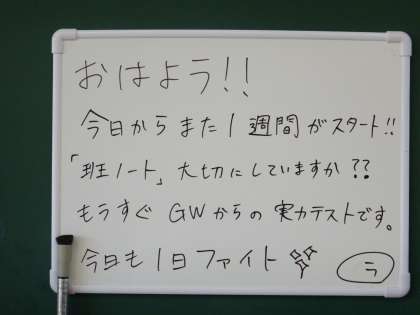 おはよう!!
今日からまた1週間がスタート!!
「班ノート」大切にしていますか??
もうすぐGWからの実力テストです。
今日も1日ファイト
ラ